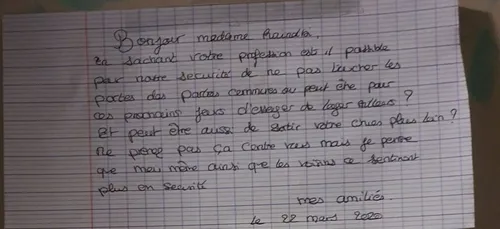 Bonjour madame
En sachant votre profession est il possible
par notre securité de ne pas toucher les
portes des parties communes ou peut être pour
ces prochains jours d'essayer de loger ailleurs ?
et peut être aussi de sortir votre chien plus loin ?
Ne prenez pas ça contre vous mais je pense
que moi même ainsi que les voisins se sentiront
plus en securité
mes amitiés.
le 22 mars 2020